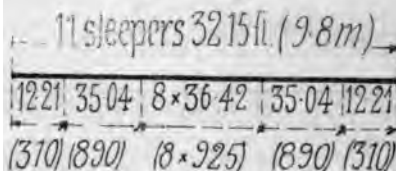 11 sleepers 32·15 ft. (9·8m)
12·21 35·04 8×36·42 35·04 12·21
(310) (890) (8×925) (890) (310)